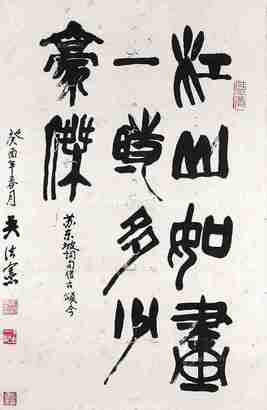 江山如畫
一時多少
豪傑
苏东坡词句借古颂今
癸酉年春月
吴法宪